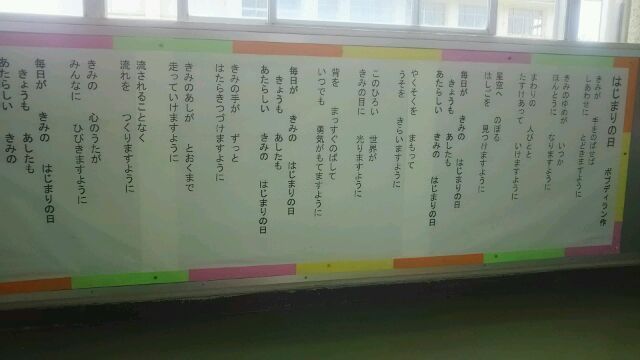 はじまりの日　ボブディラン作
きみが　手をのばせば
しあわせに　とどきますように
きみのゆめが　いつか
ほんとうに　なりますように
まわりの　人びとと
たすけあって　いけますように
星空へ　のぼる
はしごを　見つけますように
毎日が　きみの　はじまりの日
きょうも　あしたも
あたらしい　きみの　はじまりの日
やくそくを　まもって
うそを　きらいますように
このひろい　世界が
きみの目に　光りますように
背を　まっすぐのばして
いつでも　勇気がもてますように
毎日が　きみの　はじまりの日
きょうも　あしたも
あたらしい　きみの　はじまりの日
きみの手が　ずっと
はたらきつづけますように
きみのあしが　とおくまで
走っていけますように
流されることなく
流れを　つくりますように
きみの　心のうたが
みんなに　ひびきますように
毎日が　きみの　はじまりの日
きょうも　あしたも
あたらしい　きみの